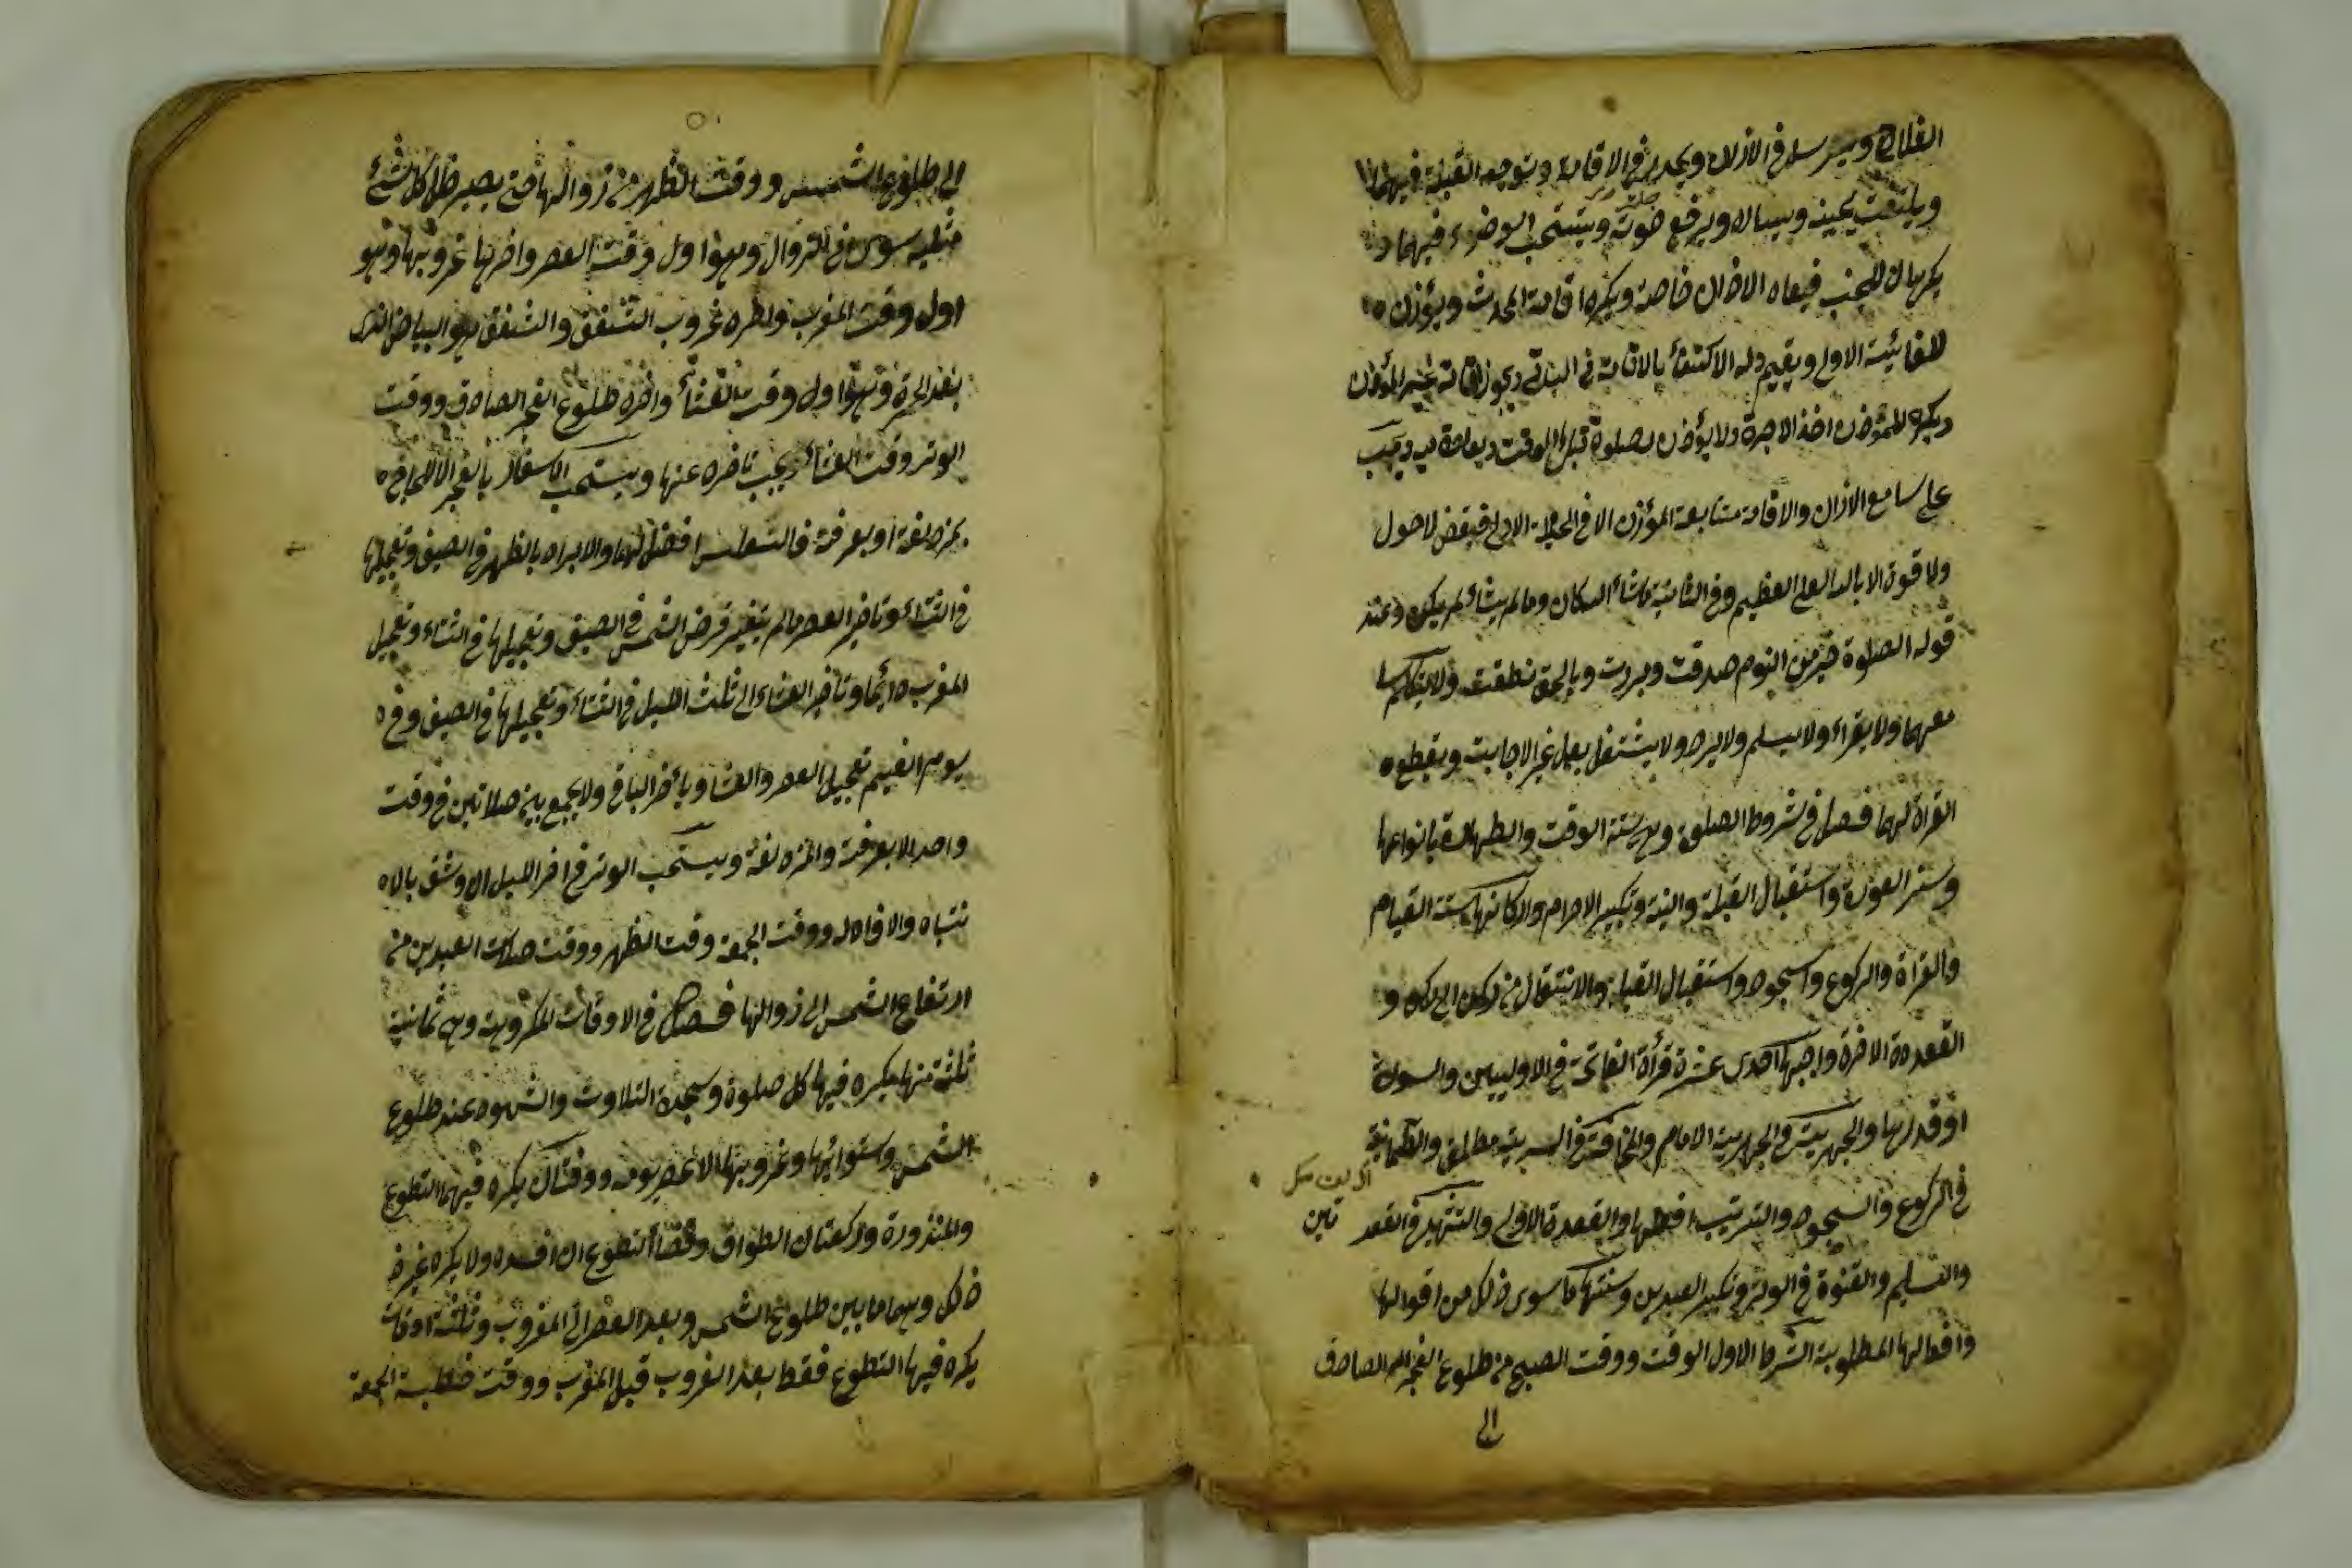 الفلاح ويترسل في الاذان ويحدر في الاقامة ويتوجه القبلة فيهما
ويلتفت يمينه ويساره ويرفع صوته ويستحب الوضوء فيهما و
يكرهان للجنب فيعاد الاذان خاصة ويكره اقامة المحدث ويؤذن
للفائتة الاولى ويقيم وله الاكتفاء بالاقامة في البواقي ويجوز اقامة غير المؤذن
ويكره للمؤذن اخذ الاجرة ولا يؤذن لصلوة قبل الوقت ويعاد فيه ويجب
على سامع الاذان والاقامة متابعة المؤذن الا في الحيعلة الاولى فيقول لا حول
ولا قوة الا بالله العلي العظيم وفي الثانية ما شاء الله كان وما لم يشأ لم يكن وعند
قوله الصلوة خير من النوم صدقت وبررت وبالحق نطقت ولا يتكلم
معهما ولا يقراء ولا يسلم ولا يرد ولا يشتغل بعمل غير الاجابت ويقطع
القرأة لهما فصل في شروط الصلوة وهي ستة الوقت والطهارة بانواعها
وستر العورة واستقبال القبلة والنية وتكبير الاحرام واركانها ستة القيام
والقرأة والركوع والسجود واستقبال القبلة والانتقال من ركن الى ركن و
القعدة الاخرة واجبها احدى عشرة قرأة الفاتحة في الاوليين والسورة
او قدرها والجهر في الجهرية الامام والمخافتة في السرية مطلق والطمانية
في الركوع والسجود والترتيب افعلها والقعدة الاولى والتشهد في القعد
تين
والتسليم والقنوة في الوتر وتكبير العيدين وسنتها ما سوى ذلك من اقوالها
وافعالها المطلوبة الشرط الاول الوقت ووقت الصبح من طلوع الفجر الصادق
الى
الى طلوع الشمس ووقت الظهر من زوالها حتى يصير ظل كل شئ
مثليه سوى في الزوال وهو اول وقت العصر واخرها غروبها وهو
اول وقت المغرب واخره غروب الشفق والشفق هو البياض الذى
بعد الحمرة وهو اول وقت العشاء واخره طلوع الفجر الصادق ووقت
الوتر وقت العشاء ويجب تاخره عنها ويستحب الاسفار بالفجر الا للحاج
بمزدلفة او بعرفة فالتغليس افضل لهما والابراد بالظهر في الصيف وتعجيلها
في الشتاء وتاخير العصر ما لم يتغير قرض الشمس في الصيف وتعجيلها في الشتاء وتعجيل
المغرب دائما وتاخير العشاء الى ثلث الليل في الشتاء وتعجيلها في الصيف وفي
يوم الغيم تعجيل العصر والعشا وبأخر الباقي ولا يجمع بين صلاتين في وقت
واحد الا بعرفت والمزدلفة ويستحب الوتر في اخر الليل ان وثق بالا
نتباه والا فاوله ووقت الجمعة وقت الظهر ووقت صلات العيدين من
ارتفاع الشمس الى زوالها فصل في الاوقات المكروهة وهي ثمانية
ثلثة منها يكره فيها كل صلوة وسجدة التلاوت والسهوه عند طلوع
الشمس واستوائها وغروبها الا عصر يومه ووقتان يكره فيهما التطوع
والمنذورة وركعتان الطواف وقضاء التطوع ان افسده ولا يكره غير
ذلك وهما ما بين طلوع الشمس وبعد العصر الى المغرب وثلثة اوقات
يكره فيها التطوع فقط بعد الغروب قبل المغرب ووقت خطبة الجمعة